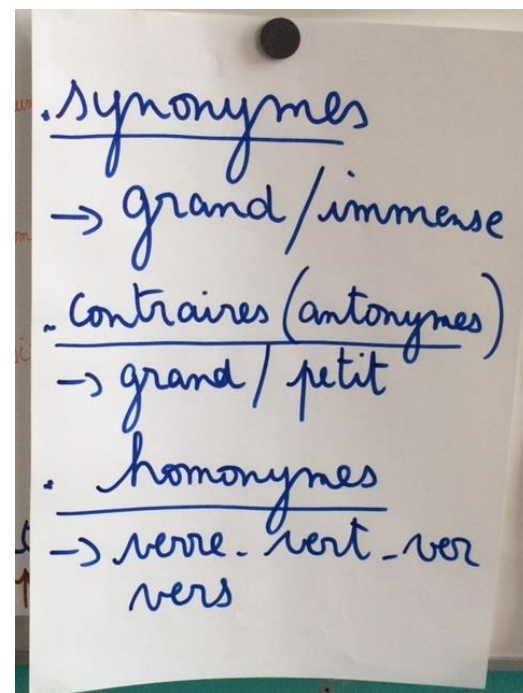 . synonymes
→ grand / immense
. contraires (antonymes)
→ grand / petit
. homonymes
→ verre - vert - ver
vers